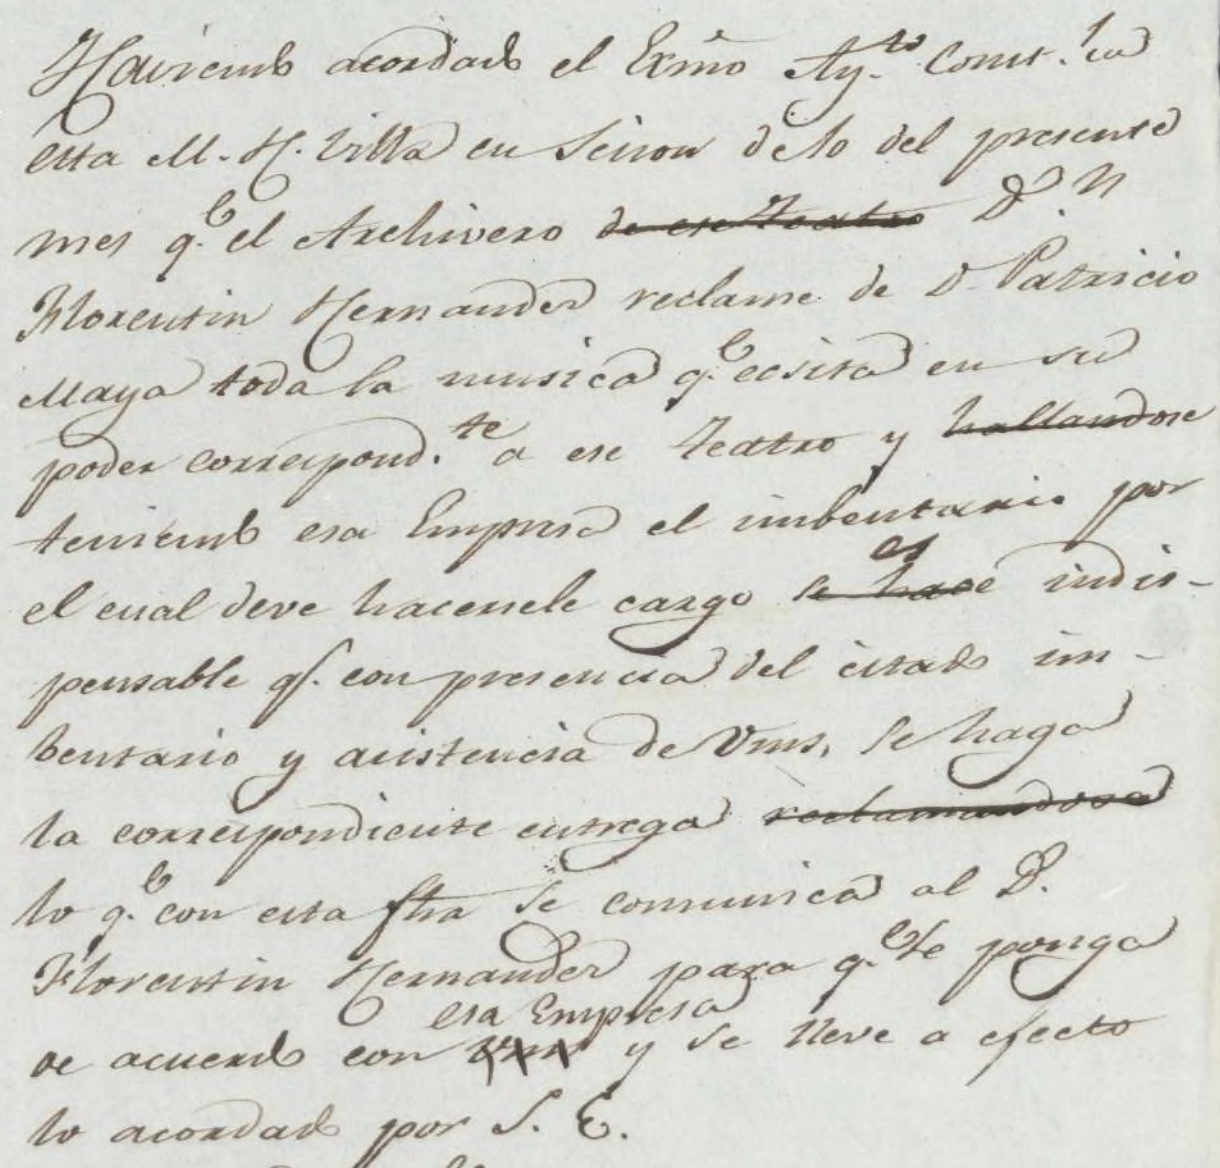 Haviendo acordado el Exmo Ay.to Const.l de
esta M. H. Villa en Sesion de 10 del presente
mes q.e el Archivero de ese Teatro D.n
Florentin Hernandez reclame de D. Patricio
Maya toda la musica q.e ecsista en su
poder correspond.te a ese Teatro y hallandose
teniendo esa Empresa el imbentario por
el cual deve hacersele cargo se hace es indis-
pensable q.e con presencia del citado im-
bentario y asistencia de Vms, se haga
la correspondiente entrega reclamandosela
lo q.e con esta fha se comunica al D.
Florentin Hernandez para q.e se ponga
de acuerdo con Vms esa Empresa y se lleve a efecto
lo acordado por S. E.